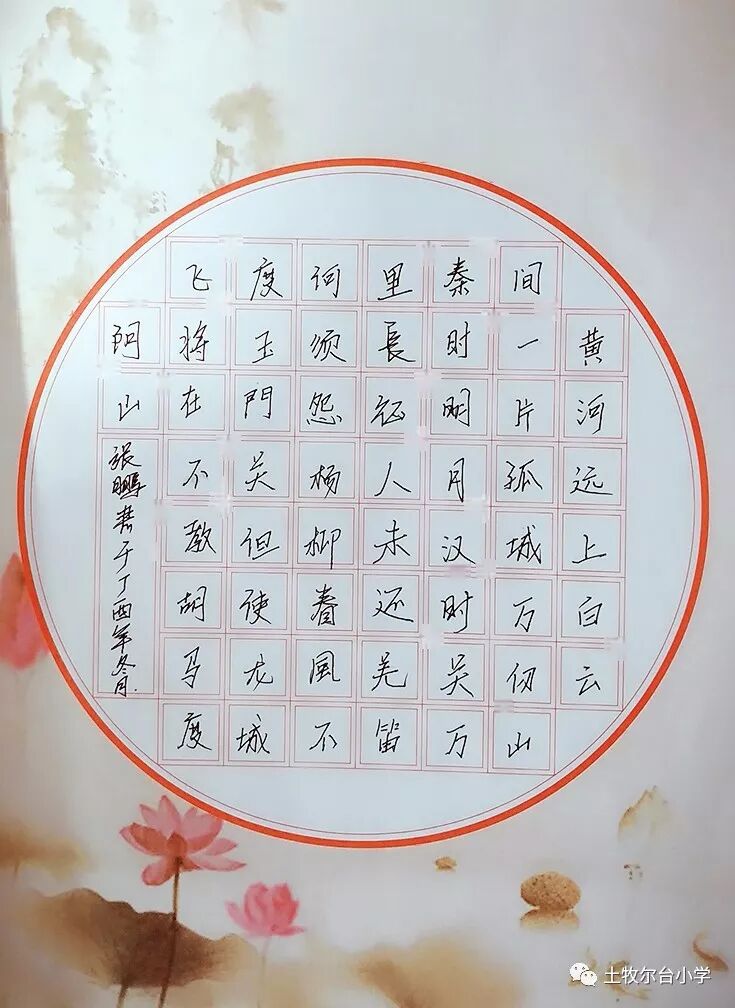 黄河远上白云
间一片孤城万仞山
秦时明月汉时关万
里長征人未还羌笛
何须怨杨柳春風不
度玉門关但使龙城
飞将在不教胡马度
阴山
张鹏于丁酉年冬月
土牧尔台小学